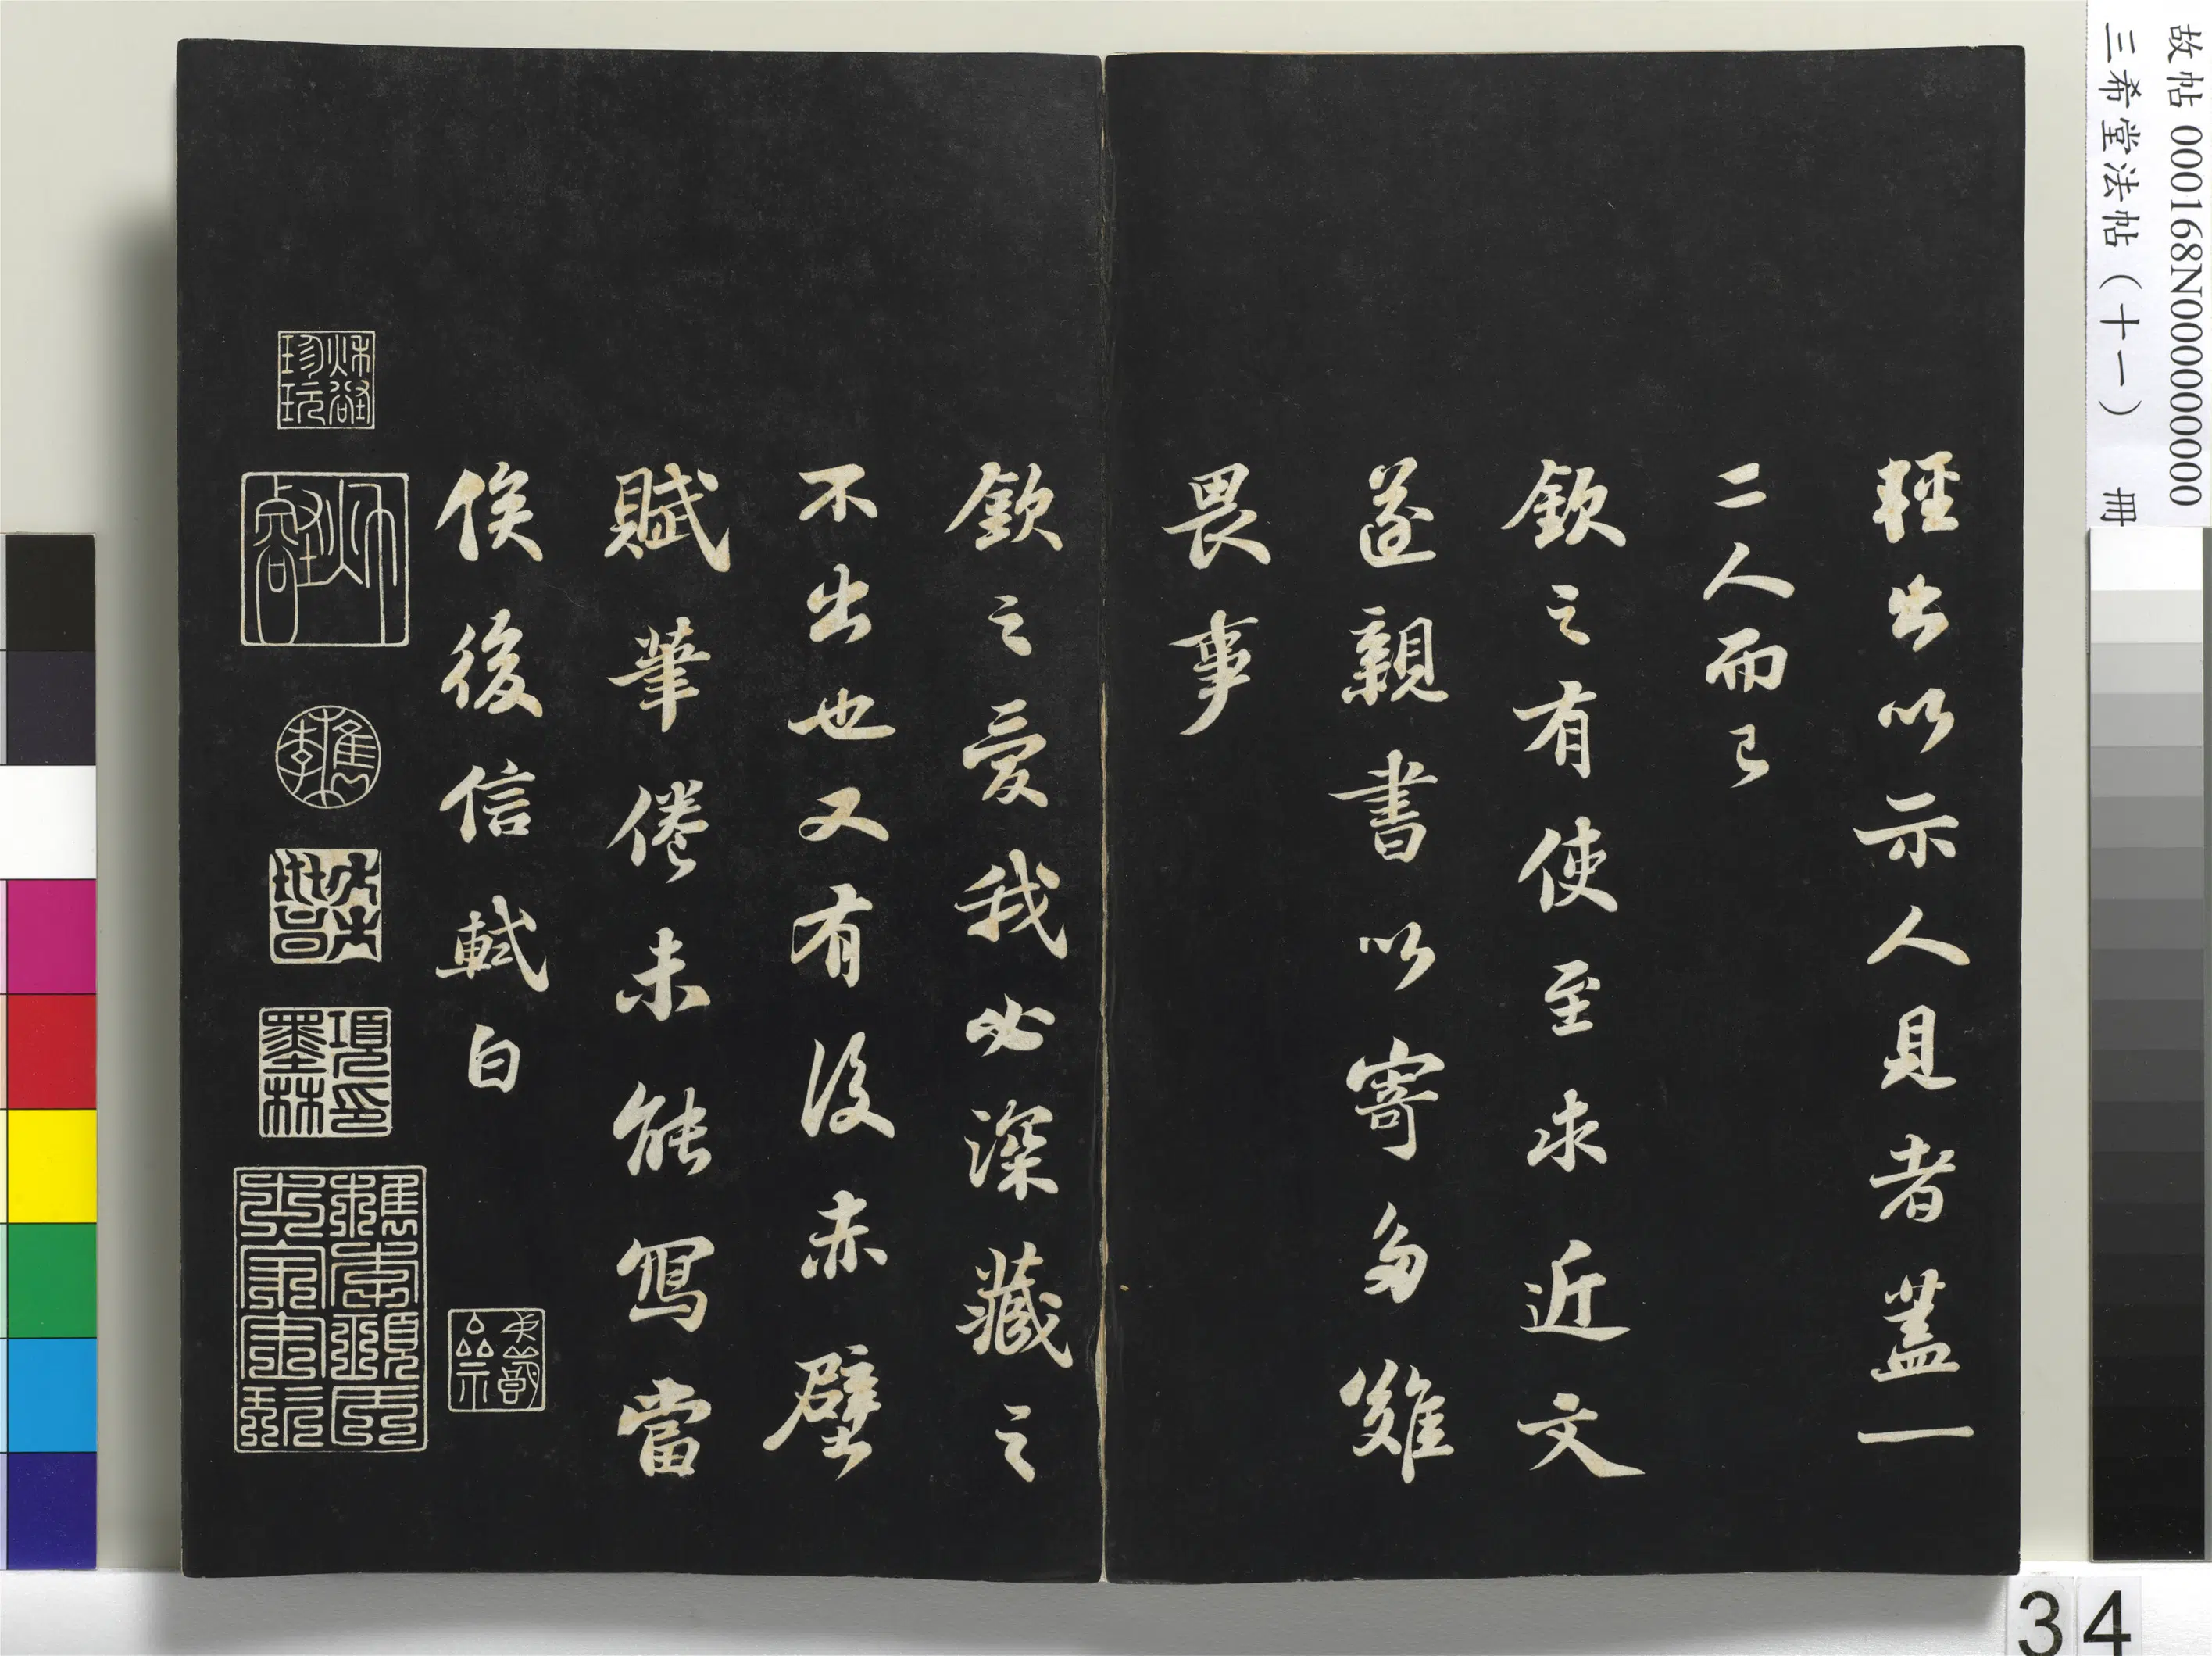 故帖 000168N000000000
三希堂法帖（十一） 冊
輕出以示人見者蓋一
二人而已
欽之有使至求近文
遂親書以寄多難
畏事
欽之愛我必深藏之
不出也又有後赤壁
賦筆倦未能寫當
俟後信軾白
項墨林印
34